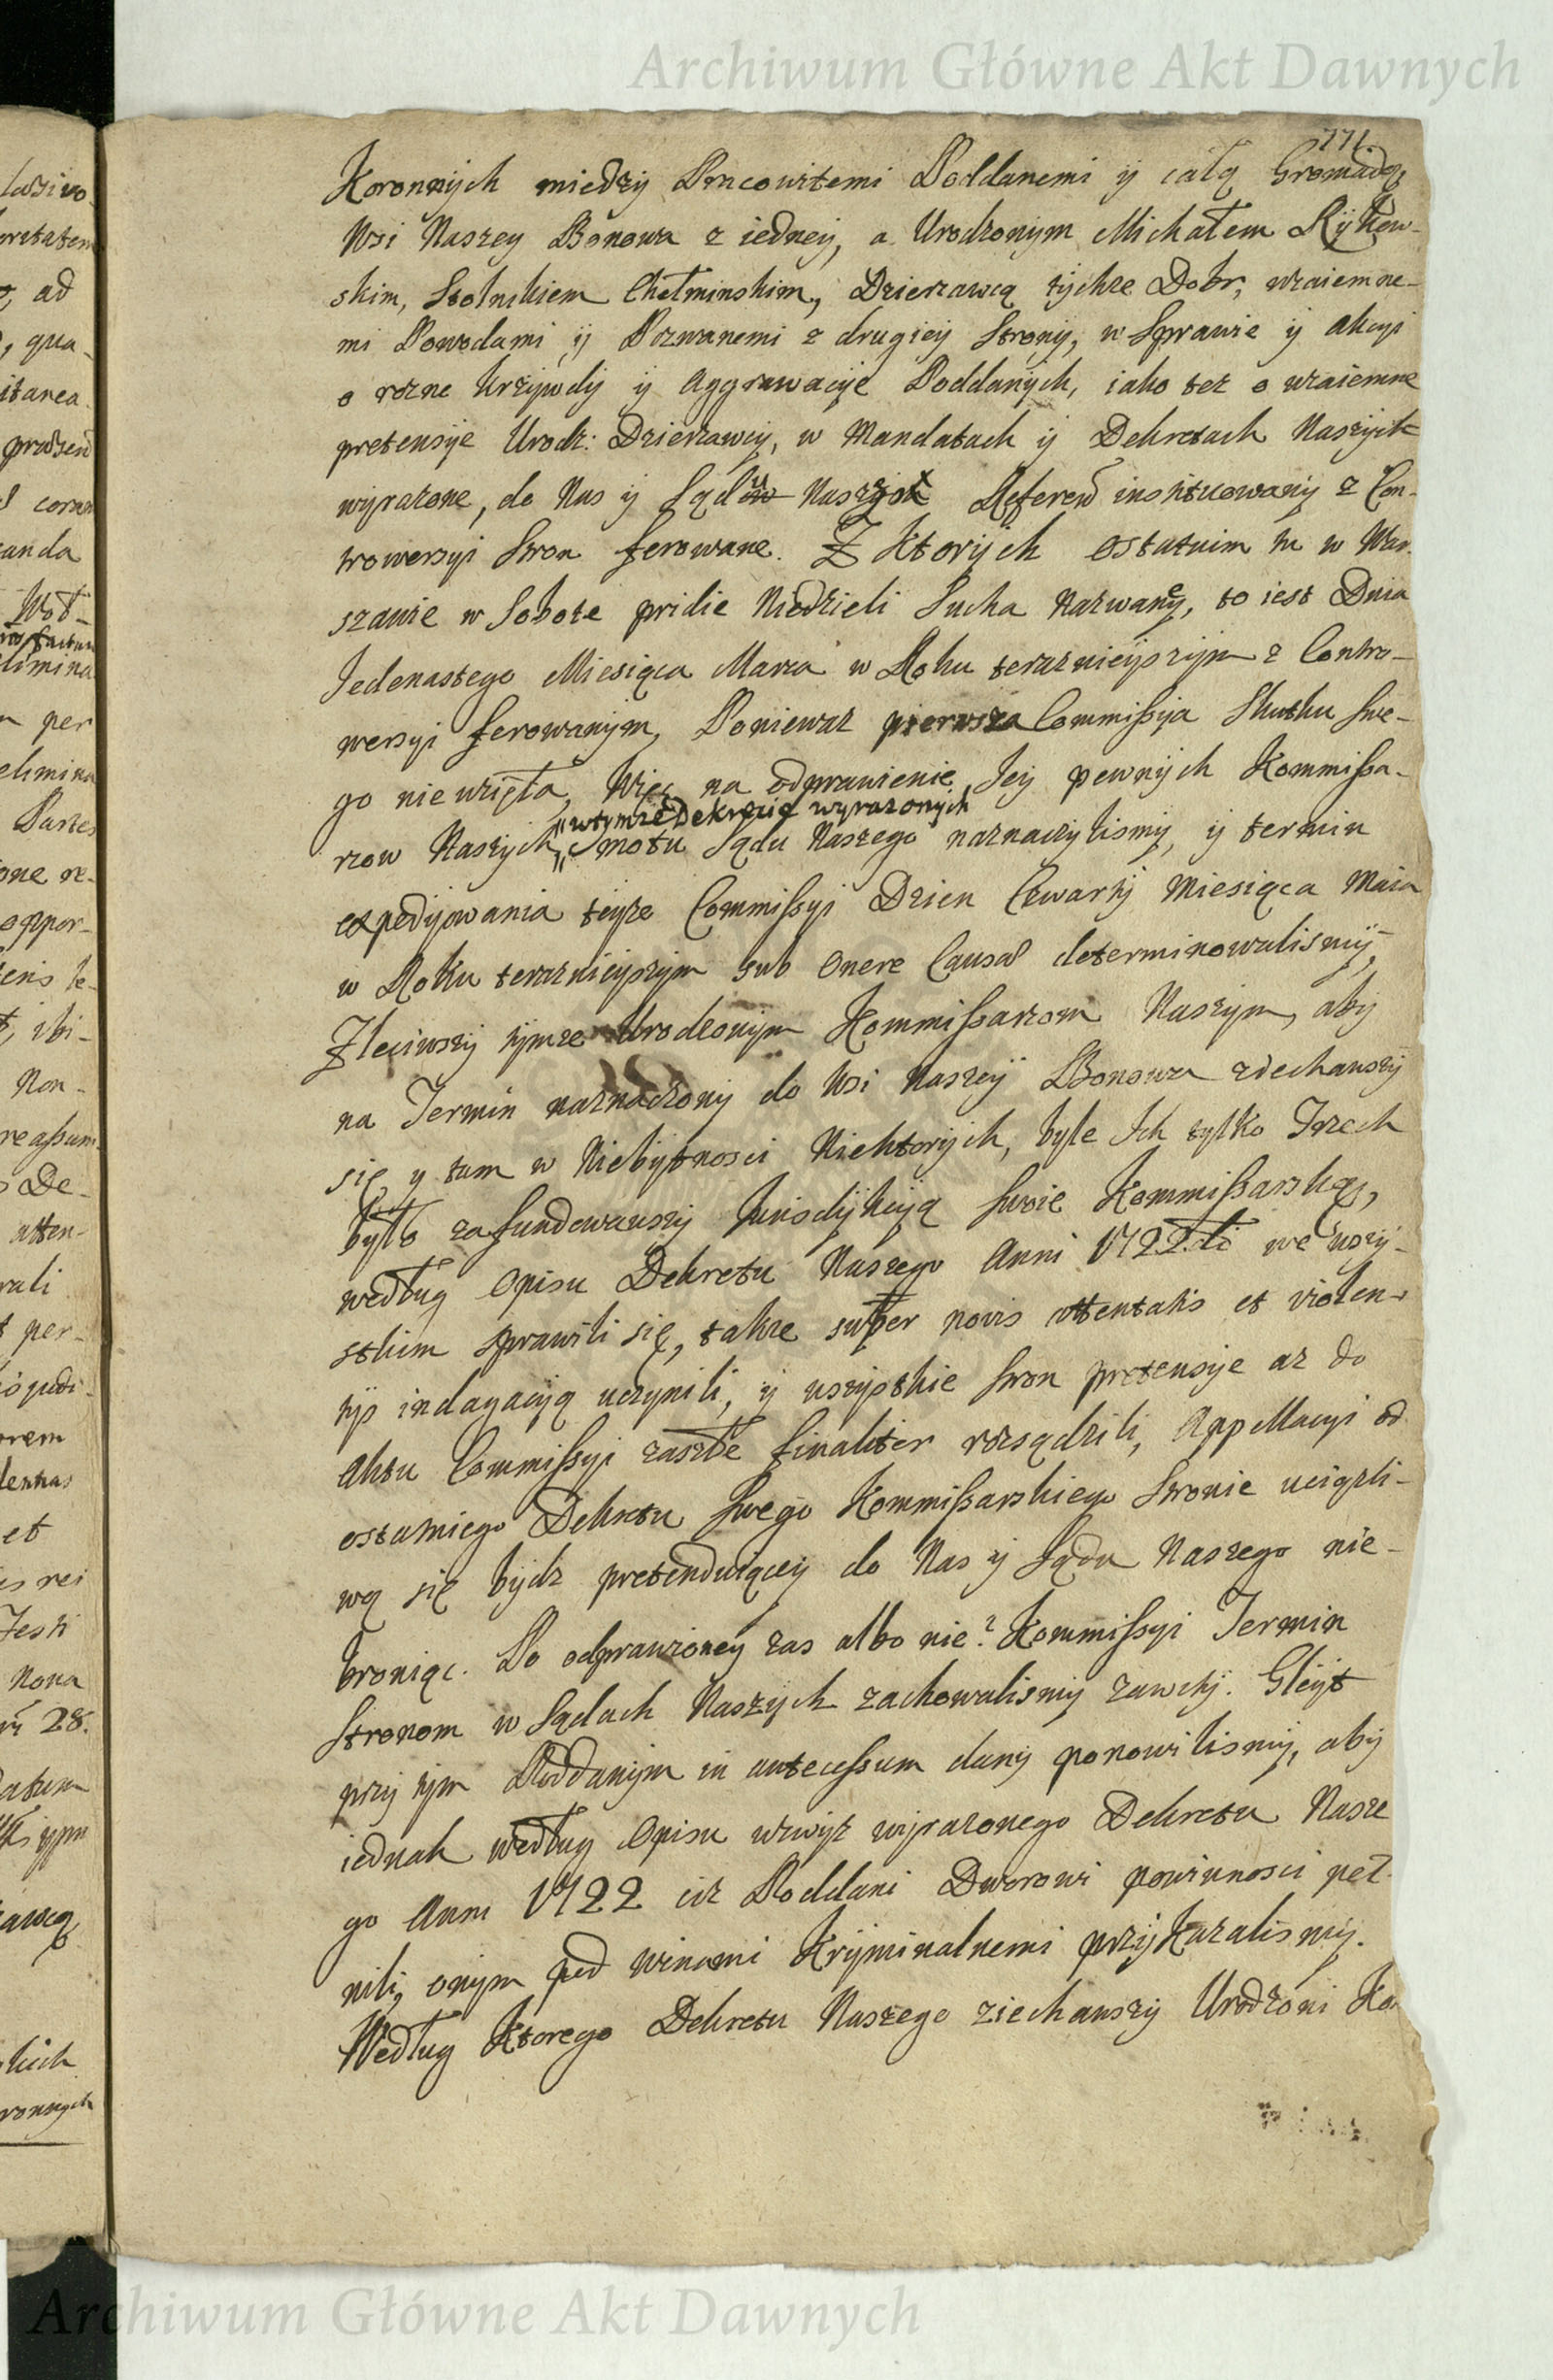 Archiwum Główne Akt Dawnych
771
Koronnych miedzy Pracowitemi Poddanemi y całą Gromadą
Wsi Naszey Bonowa z iedney, a Urodzonym Michałem Rykow-
skim, Stolnikiem Chełminskim, Dzierzawcą tychze Dobr, wzaiemne-
mi Powodami y Pozwanemi z drugiey Strony, w Sprawie y akcyi
o rozne krzywdy y aggrawacye Poddanych, iako tez o wzaiemne
pretensye Urodz: Dzierzawcy, w Mandatach y Dekretach Naszych
wyrazone, do Nas y Sądu Naszych Referend instituowany z Con-
trowersyi Stron ferowane. Z Ktorych ostatnim tu w War-
szawie w Sobote pridie Niedzieli Sucha Nazwaney, to iest Dnia
Jedenastego Miesiąca Marca w Roku teraznieyszym z Contro-
wersyi ferowanym, Poniewaz pierwsza Commissya Skutku Swe-
go nie wzięła, Więc na odprawienie Jey pewnych Kommissa-
"wtymze Dekrecie wyrazonych
rzow Naszych " motu Sądu Naszego naznaczylismy, y termin
expedyowania teyze Commissyi Dzien Czwarty Miesiąca Maia
w Roku teraznieyszym sub Onere Causae determinowalismy,
Zleciwszy tymze Urodzonym Kommissarzom Naszym, aby
na Termin naznaczony do Wsi Naszey Bonowa ziechawszy
się y tam w Niebytnosci Niektorych, byle Ich tylko Trzech
było zafundowawszy Jurisdykcyą Swoie Kommissarską,
według Opisu Dekretu Naszego Anni 1722di we wszy-
stkim sprawili się, takze super novis attentatis et violen-
tys indagacyą uczynili, y wszystkie Stron pretensye az do
Aktu Commissyi zaszłe finaliter rozsądzili, Appellacyi od
ostatniego Dekretu Swego Kommissarskiego Stronie uciązli-
wą się bydz pretenduiącey do Nas y Sądu Naszego nie-
broniąc. Po odprawioney zas albo nie? Kommissyi Termin
Stronom w Sądach Naszych zachowalismy zawity. Gleyt
przy tym Poddanym in antecessum dany ponowilismy, aby
iednak według Opisu wzwyz wyrazonego Dekretu Nasze
go Anni 1722 ciz Poddani Dworowi powinnosci peł-
nili, onym pod winami Kryminalnemi przykazalismy.
Według Ktorego Dekretu Naszego ziechawszy Urodzoni Kom
Archiwum Główne Akt Dawnych